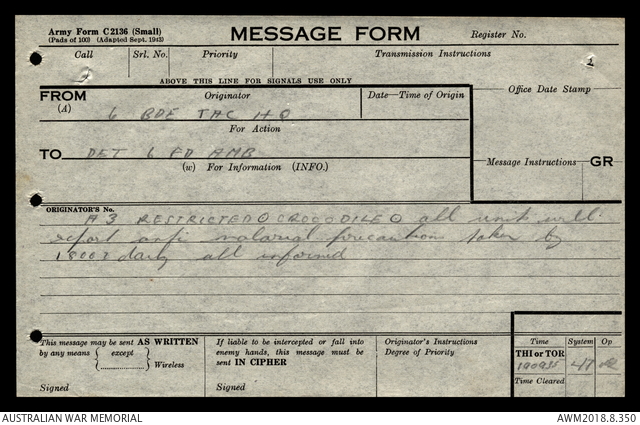 Army Form C2136 (Small)
(Pads of 100) (Adapted Sept. 1943)
MESSAGE FORM
Register No.
Call Srl. No. Priority Transmission Instructions
2 1
ABOVE THIS LINE FOR SIGNALS USE ONLY
FROM Originator Date—Time of Origin Office Date Stamp
(A) 6 BDE TAC HQ
For Action
TO DET 6 FD AMB
(w) For Information (INFO.) Message Instructions GR
ORIGINATOR'S No.
A3 RESTRICTED O CROCODILE O all units will
report anti malarial precautions taken by
1800z daily all informed
This message may be sent AS WRITTEN
by any means except Wireless
Signed
If liable to be intercepted or fall into
enemy hands, this message must be
sent IN CIPHER
Signed
Originator's Instructions
Degree of Priority
Time System Op
THI or TOR
190955 47
Time Cleared
AUSTRALIAN WAR MEMORIAL AWM2018.8.350